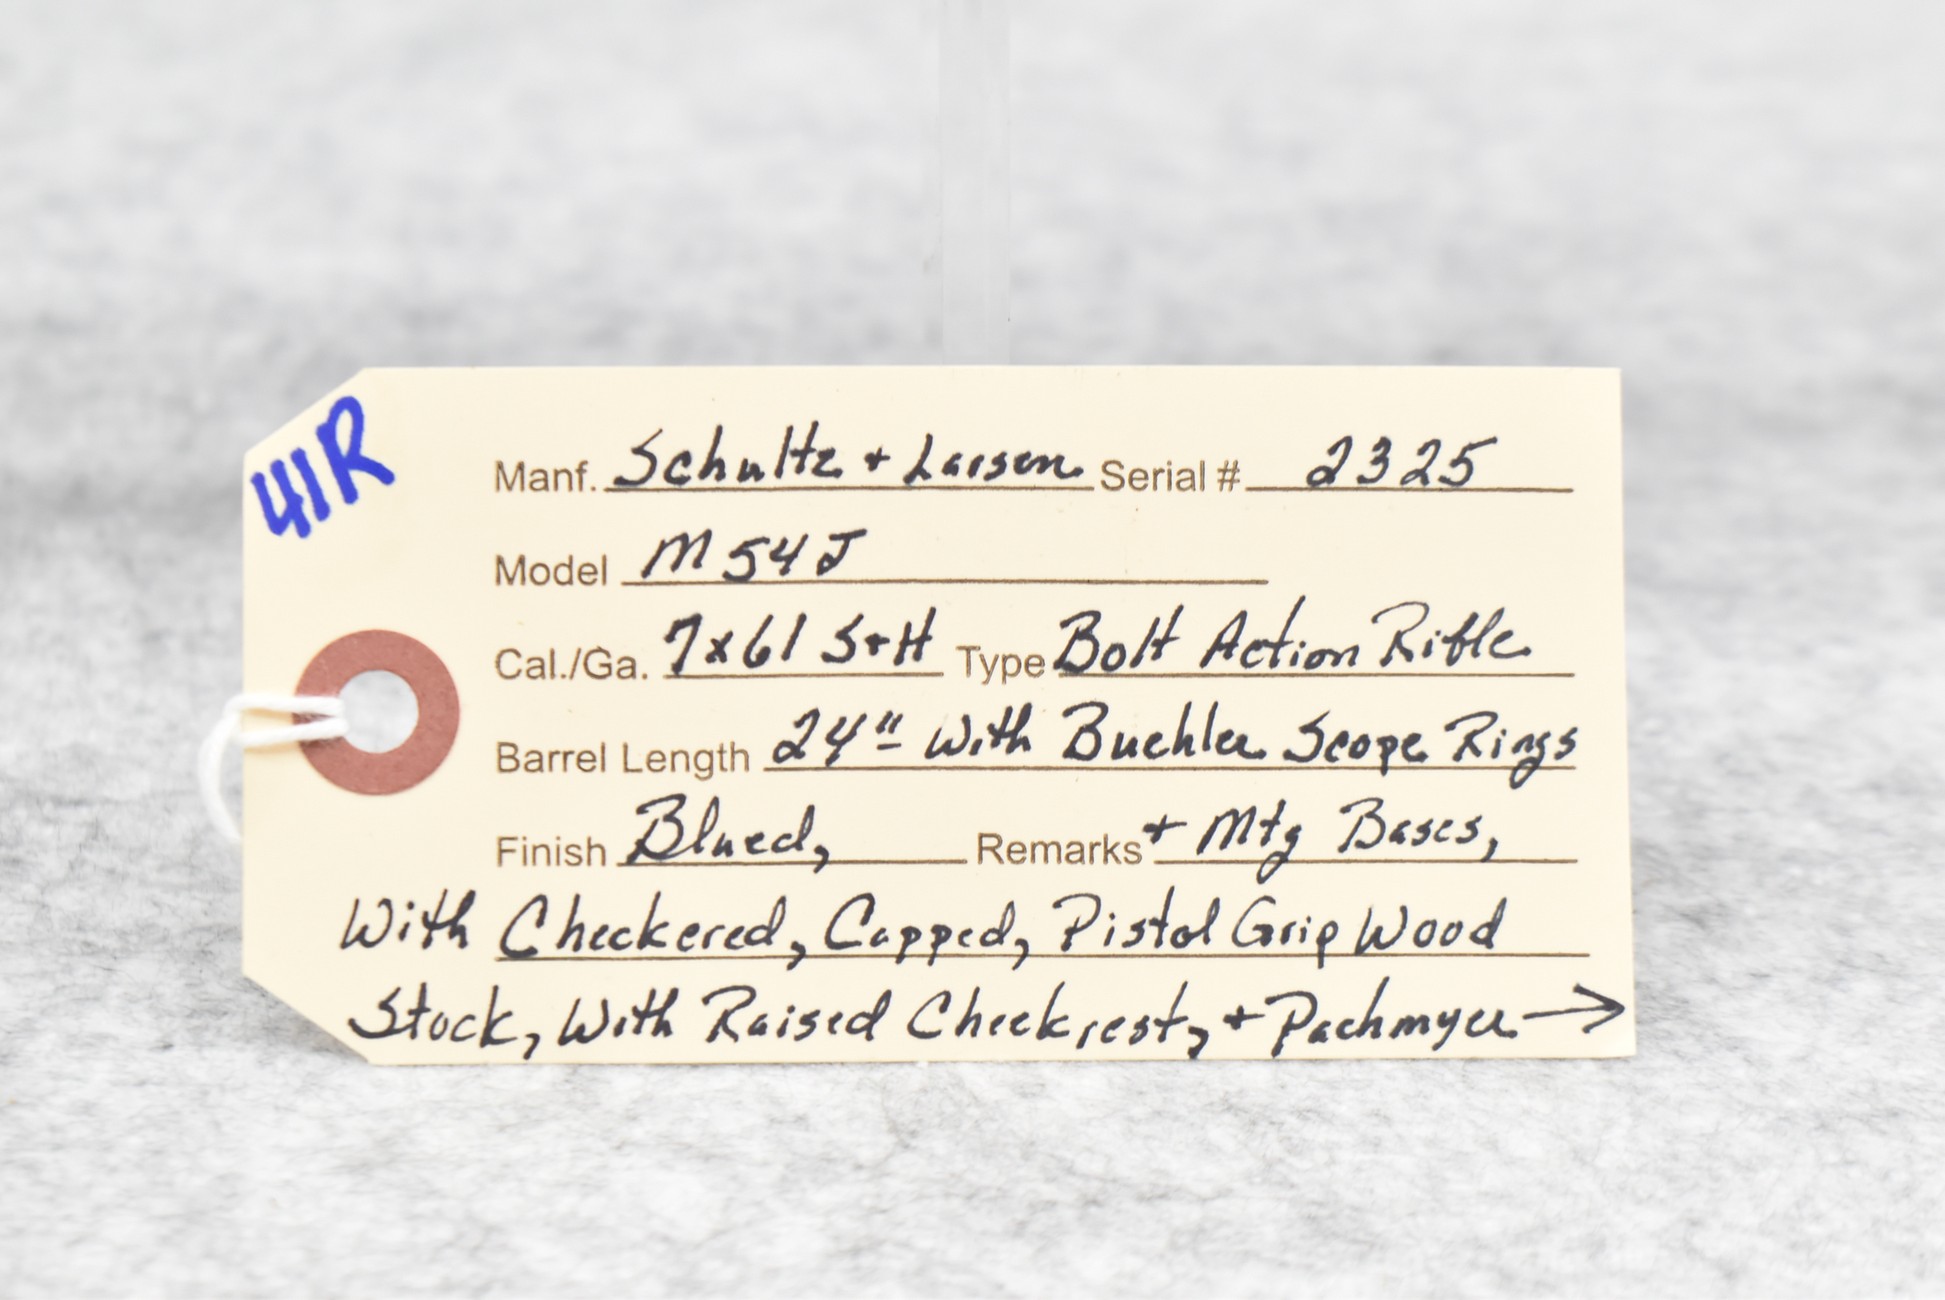 41R
Manf. Schultz + Larsen Serial # 2325
Model M54J
Cal./Ga. 7x61 S+H Type Bolt Action Rifle
Barrel Length 24" With Buehler Scope Rings
Finish Blued, Remarks + Mtg Bases,
With Checkered, Capped, Pistol Grip Wood
Stock, With Raised Cheekrest, + Pachmyer →